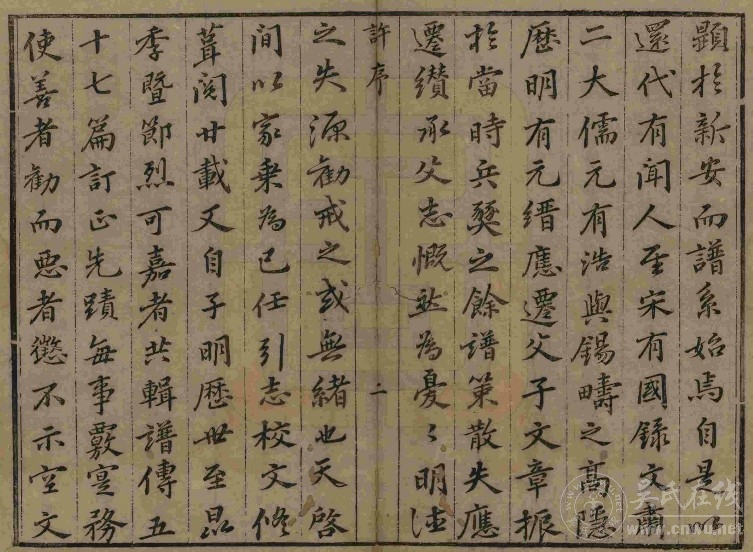 顯扵新安而譜系始焉自是以
還代有聞人至宋有國録文肅
二大儒元有浩與錫疇之高隱
歷明有元縉應遷父子文章振
扵當時兵燹之餘譜策散失應
遷纘承父志慨然為憂〻明徳
許序
二
之失源勸戒之或無緒也天啓
間以家乗為已任引志校文修
葺閲廿載又自子明歷世至昆
季暨節烈可嘉者共輯譜傳五
十七篇訂正先蹟每事覈實務
使善者勸而惡者懲不示空文
吴氏在线
www.cnwu.net